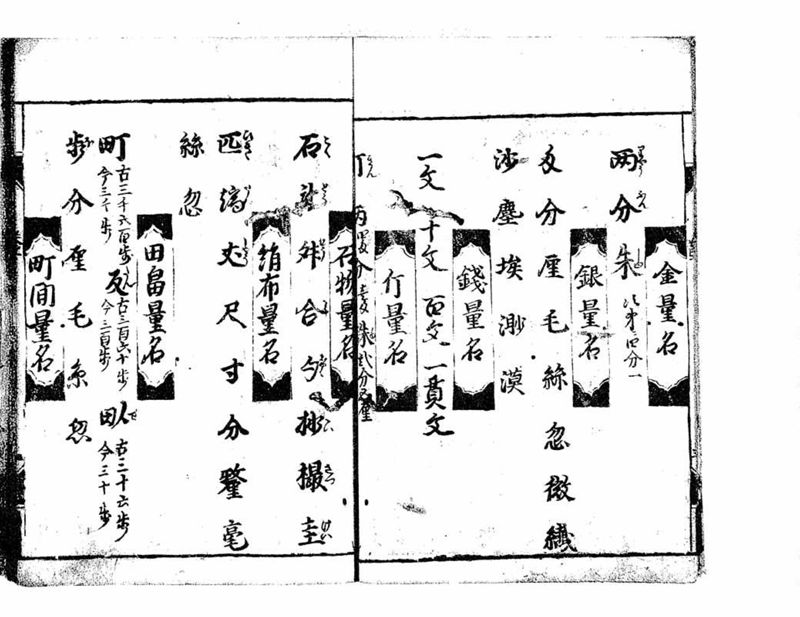 金量名
両分朱 四分一
銀量名
分厘毛絲忽微纎
沙塵埃渺漠
錢量名
一文 十文 百文 一貫文
行量名
石物量名
石斗舛合勺抄撮圭
絹布量名
匹端丈尺寸分釐毫
絲忽
田畠量名
町 古三千六百歩 今三千歩 反 古三百六十歩 今三百歩 畝 古三十六歩 今三十歩
歩分厘毛糸忽
町間量名